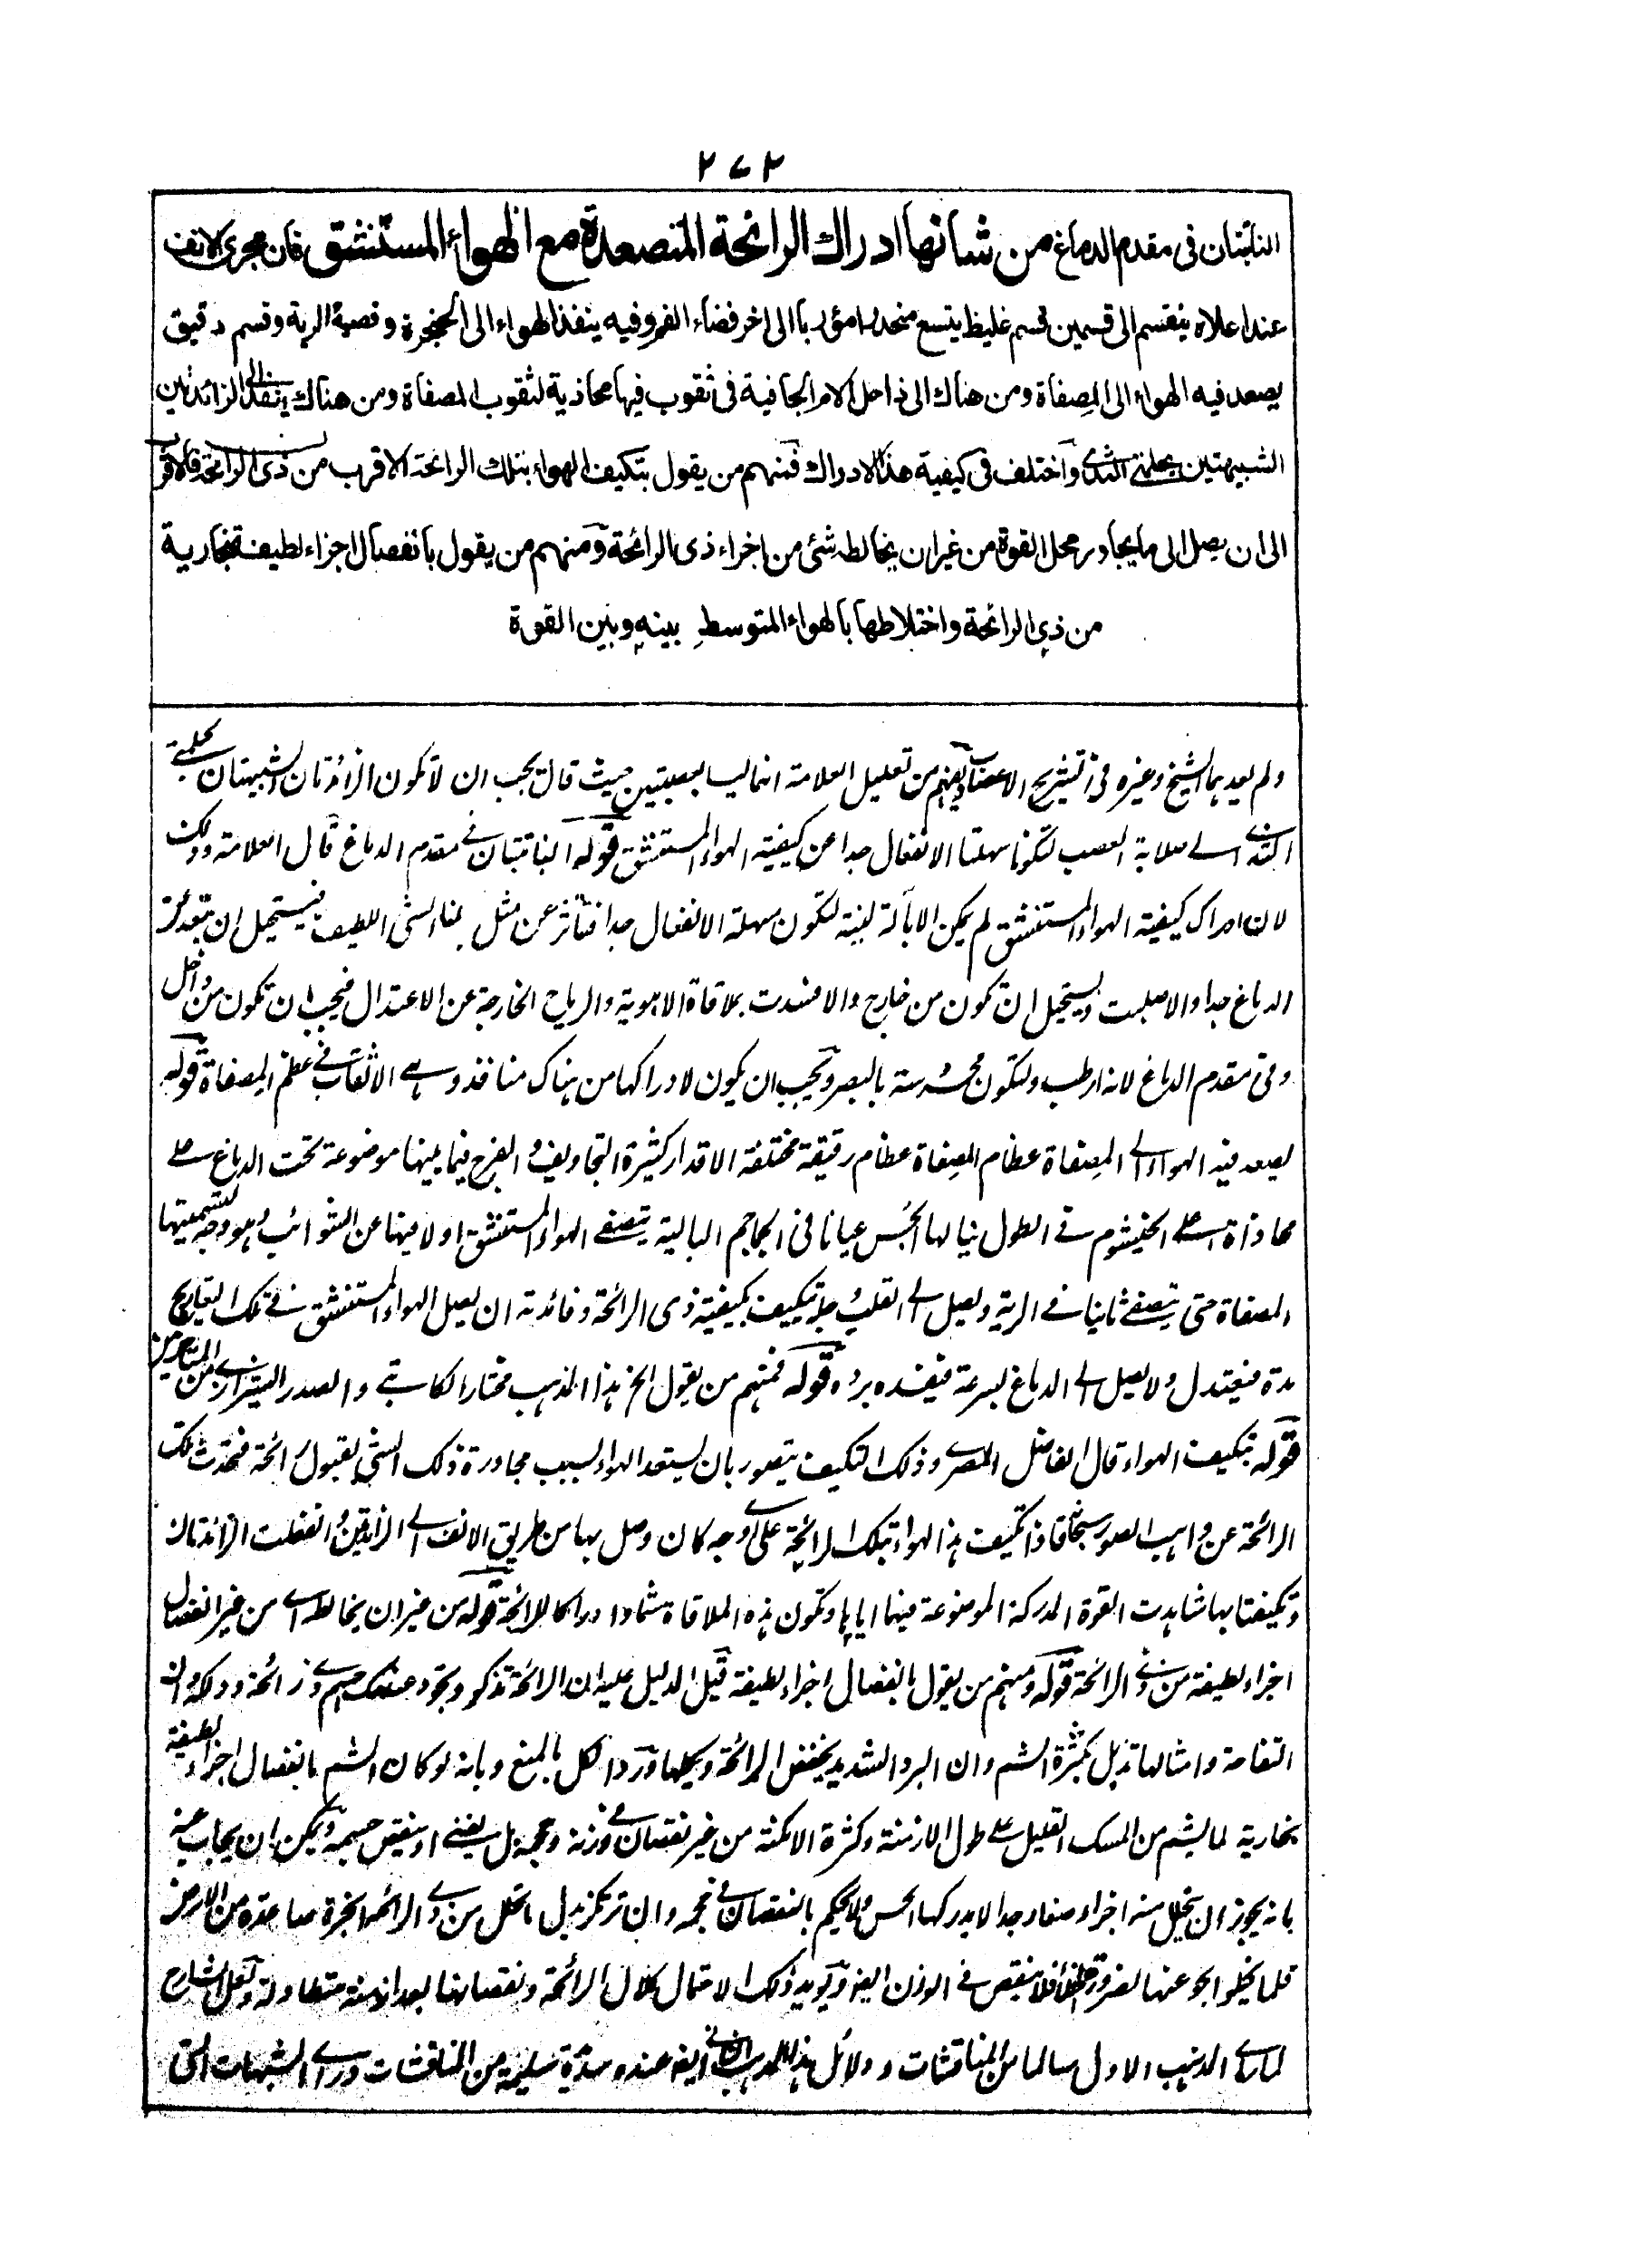 ٢٧٢
النابتتان فى مقدم الدماغ من شانها ادراك الرائحة المتصعدة مع الهواء المستنشق فان مجرى الانف
عند اعلاه ينقسم الى قسمين قسم غليظ يتسع منحدرا مؤربا الى اخر فضاء الفم وفيه ينفذ الهواء الى الحنجرة وقصبة الرية وقسم دقيق
يصعد فيه الهواء الى المصفاة ومن هناك الى داخل الام الجافية فى ثقوب فيها محاذية لثقوب المصفاة ومن هناك ينفذ الى الزائدتين
الشبيهتين بحلمتى الثدى واختلف فى كيفية هذا الادراك فمنهم من يقول بتكيف الهواء بتلك الرائحة الاقرب من ذى الرائحة فالاقرب
الى ان يصل الى ما يجاور محل القوة من غير ان يخالطه شئ من اجزاء ذى الرائحة ومنهم من يقول بانفصال اجزاء لطيفة بخارية
من ذى الرائحة واختلاطها بالهواء المتوسط بينه وبين القوة
ولم يعد هما الشيخ وغيره فى تشريح الاعصاب من تعليل العلامة انما ليسا بعصبتين حيث قال يجب ان لا تكون الزائدتان الشبيهتان بحلمتى
الثدى فى صلابة العصب لتكونا سهلتا الانفعال جدا عن كيفية الهواء المستنشق قوله النابتتان فى مقدم الدماغ قال العلامة وذلك
لان ادراك كيفية الهواء المستنشق لم يمكن الا بآلة لينة لتكون سهلة الانفعال جدا فتتأثر عن مثل هذا الشئ اللطيف فيستحيل ان تبعد عن
الدماغ جدا والا صلبت ويستحيل ان تكون من خارج والا فسدت بملاقاة الاهوية والرياح الخارجة عن الاعتدال فيجب ان تكون من داخل
وفى مقدم الدماغ لانه ارطب ولتكون محروسة بالبصر ويجب ان يكون لادراكها من هناك منافذ وهى الاثقاب فى عظم المصفاة قوله
يصعد فيه الهواء الى المصفاة عظام المصفاة عظام رقيقة مختلفة الاقدار كثيرة التجاويف والفرج فيما بينها موضوعة تحت الدماغ على
محاذاة اعلى الخيشوم فى الطول ينالها الحس عيانا فى الجماجم البالية يتصفى الهواء المستنشق اولا فيها عن الشوائب وهو وجه تسميتها
المصفاة حتى يتصفى ثانيا فى الرية ويصل الى القلب تكيف بكيفية ذى الرائحة وفائدته ان يصل الهواء المستنشق فى تلك التعاريج
مدة فيعتدل ولا يصل الى الدماغ بسرعة فيفسده برده قوله فمنهم من يقول الخ هذا المذهب مختار الكاتبى والصدر الشيرازى من المتاخرين
قوله بتكيف الهواء قال الفاضل المصرى وذلك التكيف يتصور بان يستعد الهواء بسبب مجاورة ذلك الشئ لقبول رائحة فحدث تلك
الرائحة عن واهب الصور سبحانه فاذا تكيف هذا الهواء بتلك الرائحة على اى وجه كان وصل بها من طريق الانف الى الزائدتين وانفعلت الزائدتان
وتكيفتا بها شاهدت القوة المدركة الموضوعة فيهما اياها وتكون هذه الملاقاة شما وادراكا للرائحة قوله من غير ان يخالطه اى من غير انفصال
اجزاء لطيفة من ذى الرائحة قوله ومنهم من يقول بانفصال اجزاء لطيفة قيل الدليل عليه ان الرائحة تذكو جسم ذى رائحة وان
التفاحة وامثالها تذبل بكثرة الشم وان البرد الشديد يخفف الرائحة ورد الكل بالمنع وبانه لو كان الشم بانفصال اجزاء لطيفة
بخارية لما يشم من المسك القليل على طول الازمنة وكثرة الامكنة من غير نقصان فى وزنه وحجمه بل يفنى او ينقص جسمه ويمكن ان يجاب عنه
بانه يجوز ان يتحلل منه اجزاء صغار جدا لا يدركها الحس ولا يحكم بالنقصان فى حجمه وان بدل ما تحلل من ذى الرائحة ابخرة صاعدة من الارض
قلما يخلو الجو عنها فلا ينقص فى الوزن ايضا ويؤيد ذلك الاحتمال كلال الرائحة ونقصانها بعد ازمنة متطاولة ولعل الشارح
لما رأى المذهب الاول سالما من المناقشات ودلائل هذا المذهب ايضا عنده سليمة من المناقشات ورأى الشبهات التى